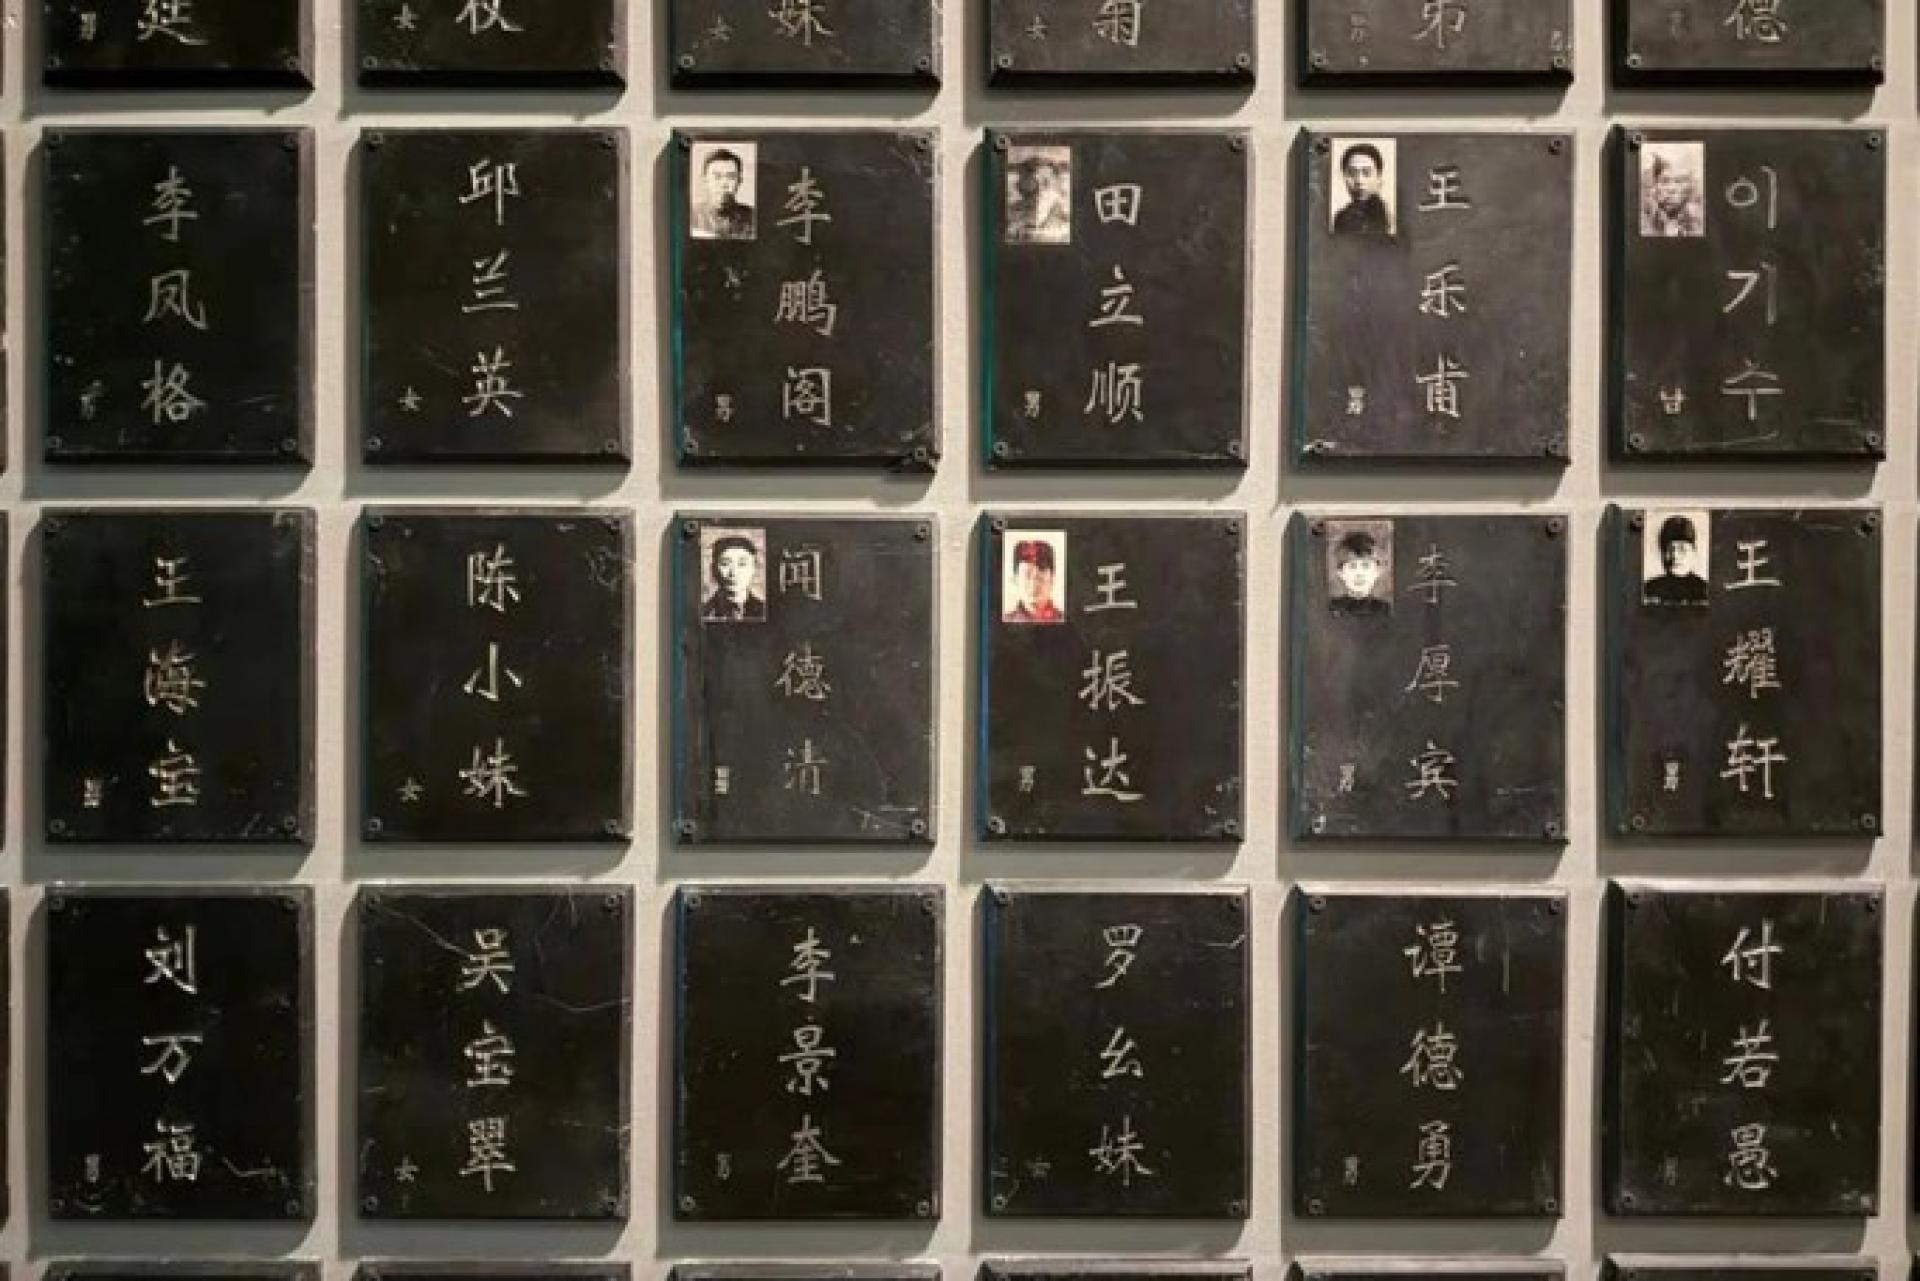 廷
权
女
妹
女
菊
女
弟
德
李凤格
男
邱兰英
女
李鹏阁
男
田立顺
男
王乐甫
男
이기수
남
王海宝
男
陈小妹
女
闻德清
男
王振达
男
李厚宾
男
王耀轩
男
刘万福
男
吴宝翠
女
李景奎
男
罗幺妹
女
谭德勇
男
付若愚
男